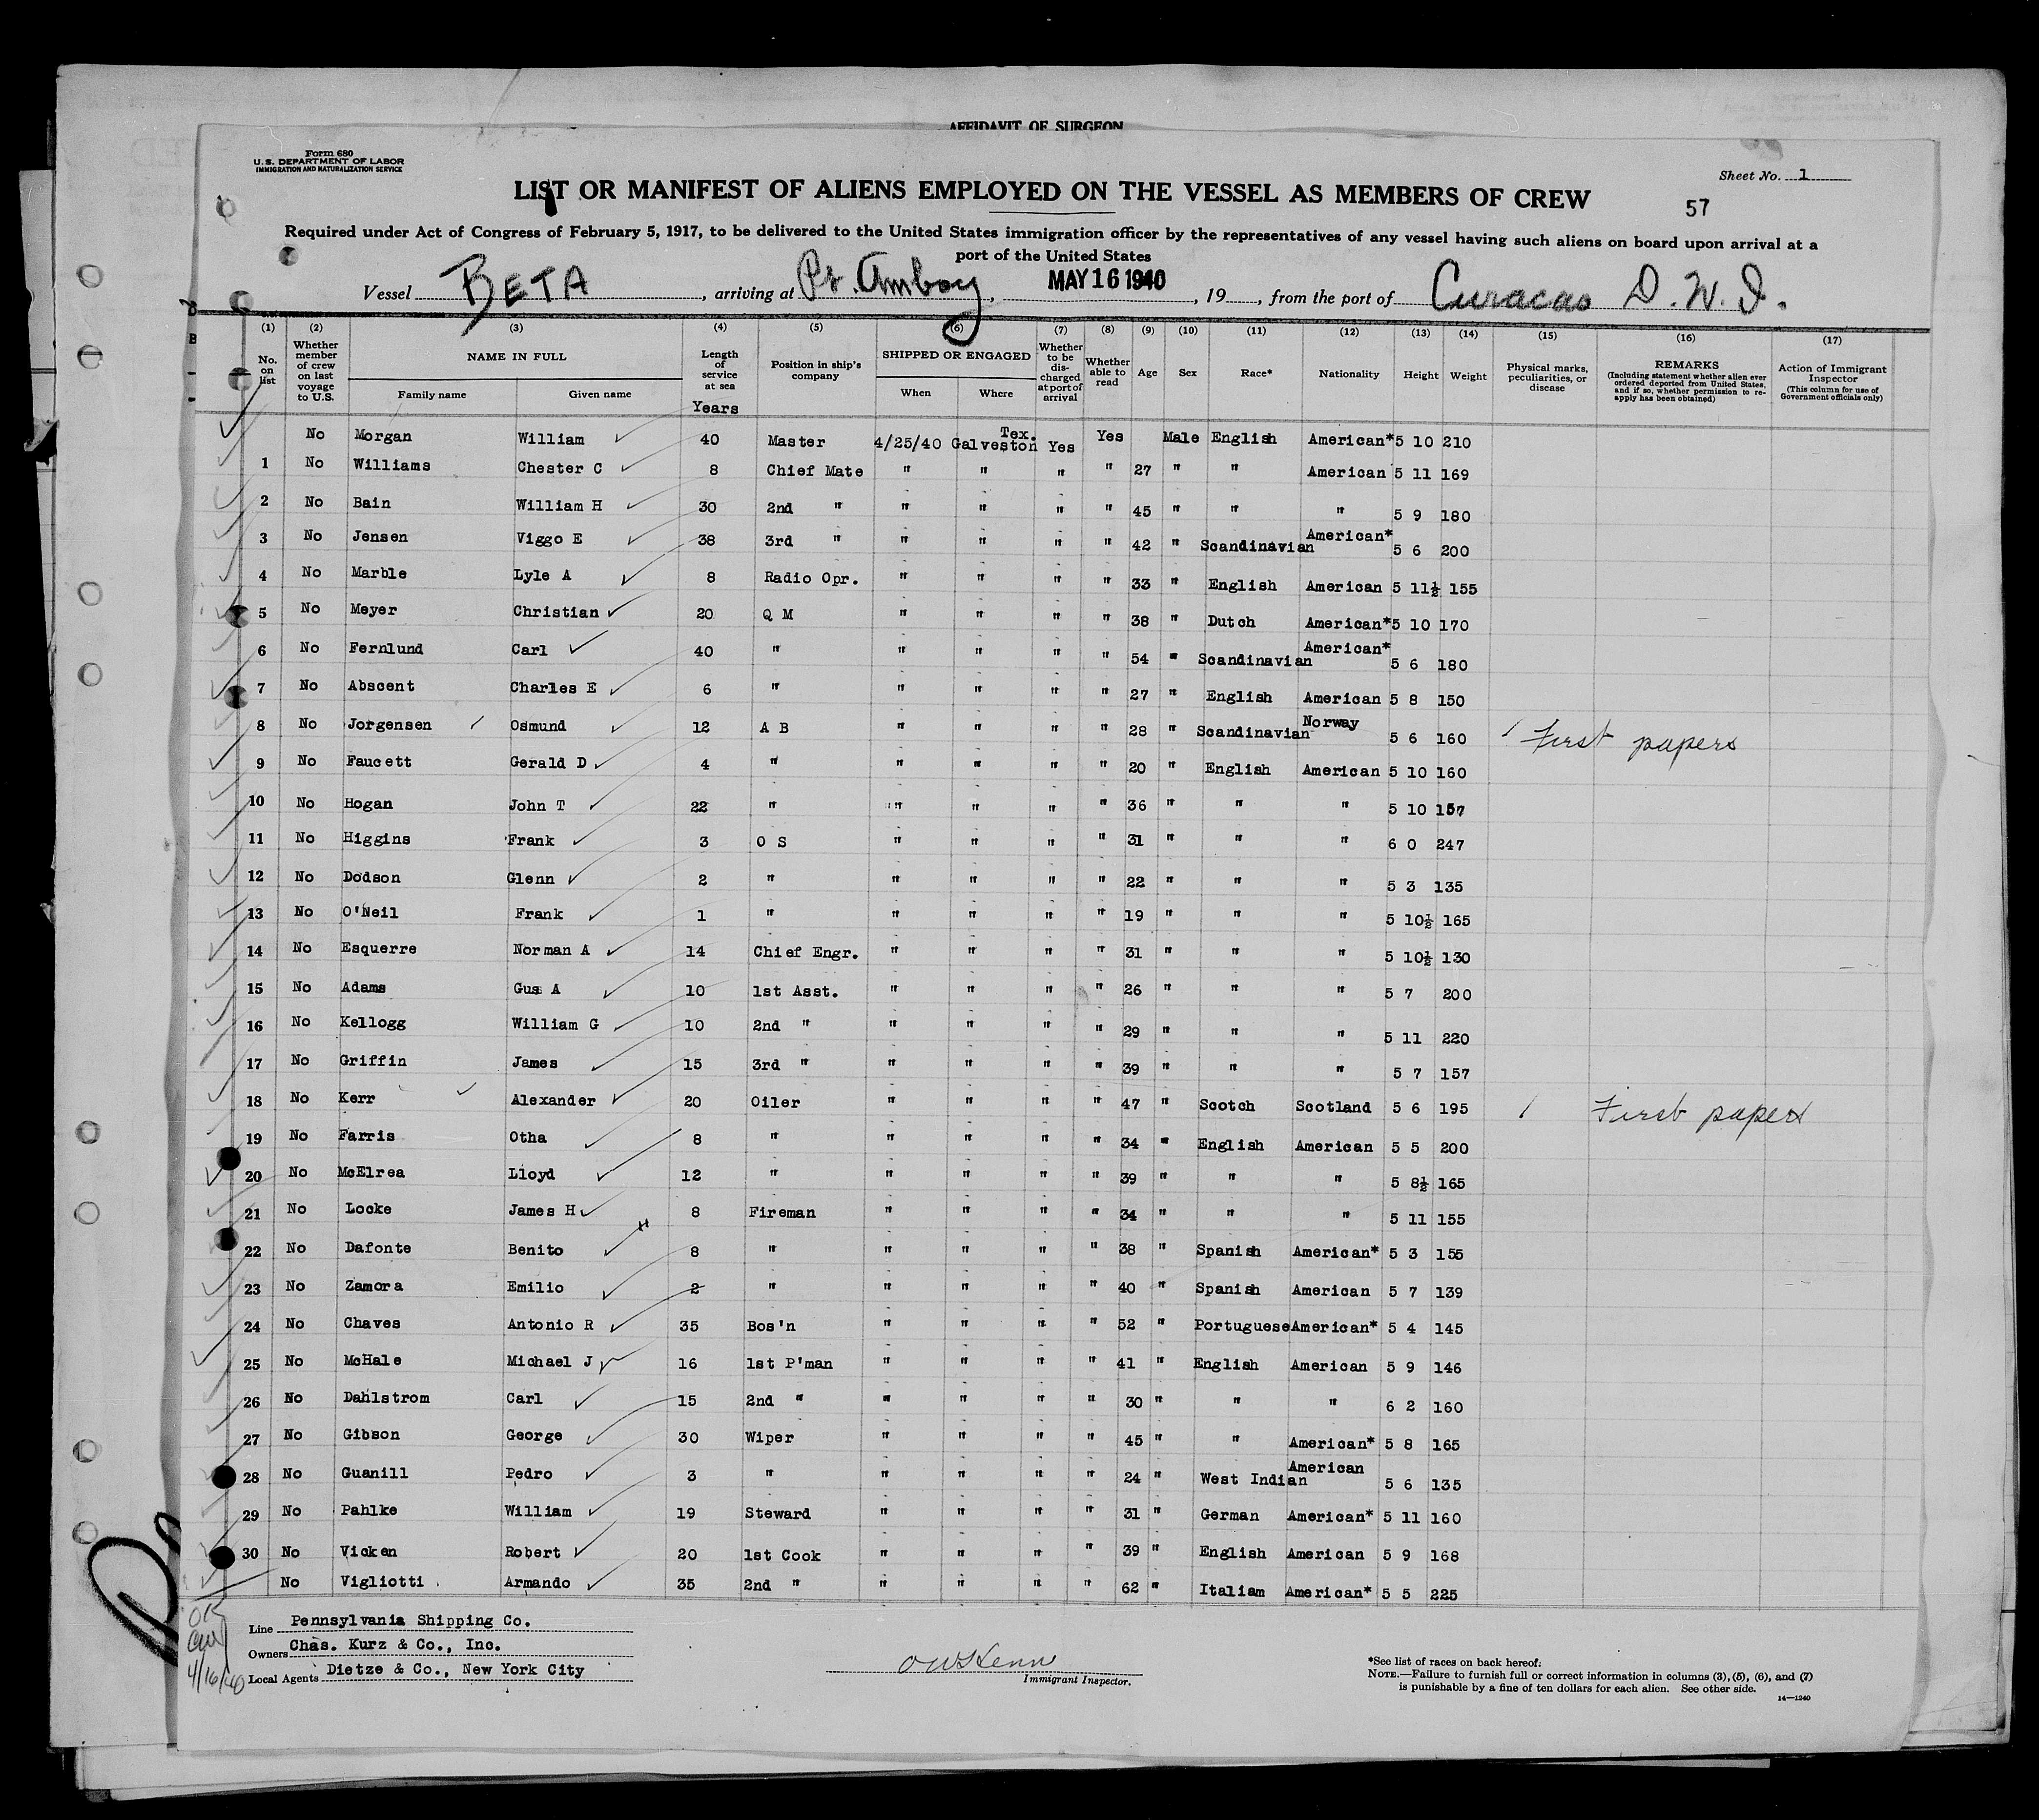 AFFIDAVIT OF SURGEON
Form 680
U. S. DEPARTMENT OF LABOR
IMMIGRATION AND NATURALIZATION SERVICE
Sheet No. 1
LIST OR MANIFEST OF ALIENS EMPLOYED ON THE VESSEL AS MEMBERS OF CREW
57
Required under Act of Congress of February 5, 1917, to be delivered to the United States immigration officer by the representatives of any vessel having such aliens on board upon arrival at a
port of the United States
Vessel BETA, arriving at Pt. Amboy, MAY 16 1940, 19, from the port of Curacao D.W.I.
(1) (2) (3) (4) (5) (6) (7) (8) (9) (10) (11) (12) (13) (14) (15) (16) (17)
No. on list
Whether member of crew on last voyage to U.S.
NAME IN FULL
Family name
Given name
Length of service at sea
Years
Position in ship's company
SHIPPED OR ENGAGED
When
Where
Whether to be discharged at port of arrival
Whether able to read
Age
Sex
Race*
Nationality
Height
Weight
Physical marks, peculiarities, or disease
REMARKS
(Including statement whether alien ever ordered deported from United States, and if so, whether permission to reapply has been obtained)
Action of Immigrant Inspector
(This column for use of Government officials only)
No Morgan William 40 Master 4/25/40 Galveston Tex. Yes Yes Male English American* 5 10 210
1 No Williams Chester C 8 Chief Mate " " " " 27 " " American 5 11 169
2 No Bain William H 30 2nd " " " " " 45 " " " 5 9 180
3 No Jensen Viggo E 38 3rd " " " " " 42 " Scandinavian American* 5 6 200
4 No Marble Lyle A 8 Radio Opr. " " " " 33 " English American 5 11½ 155
5 No Meyer Christian 20 Q M " " " " 38 " Dutch American* 5 10 170
6 No Fernlund Carl 40 " " " " " 54 " Scandinavian American* 5 6 180
7 No Abscent Charles E 6 " " " " " 27 " English American 5 8 150
8 No Jorgensen Osmund 12 A B " " " " 28 " Scandinavian Norway 5 6 160 First papers
9 No Faucett Gerald D 4 " " " " " 20 " English American 5 10 160
10 No Hogan John T 22 " " " " " 36 " " " 5 10 157
11 No Higgins Frank 3 O S " " " " 31 " " " 6 0 247
12 No Dodson Glenn 2 " " " " " 22 " " " 5 3 135
13 No O'Neil Frank 1 " " " " " 19 " " " 5 10½ 165
14 No Esquerre Norman A 14 Chief Engr. " " " " 31 " " " 5 10½ 130
15 No Adams Gus A 10 1st Asst. " " " " 26 " " " 5 7 200
16 No Kellogg William G 10 2nd " " " " " 29 " " " 5 11 220
17 No Griffin James 15 3rd " " " " " 39 " " " 5 7 157
18 No Kerr Alexander 20 Oiler " " " " 47 " Scotch Scotland 5 6 195 First papers
19 No Farris Otha 8 " " " " " 34 " English American 5 5 200
20 No McElrea Lloyd 12 " " " " " 39 " " " 5 8½ 165
21 No Locke James H 8 Fireman " " " " 34 " " " 5 11 155
22 No Dafonte Benito 8 " " " " " 38 " Spanish American* 5 3 155
23 No Zamora Emilio 2 " " " " " 40 " Spanish American 5 7 139
24 No Chaves Antonio R 35 Bos'n " " " " 52 " Portuguese American* 5 4 145
25 No McHale Michael J 16 1st P'man " " " " 41 " English American 5 9 146
26 No Dahlstrom Carl 15 2nd " " " " " 30 " " " 6 2 160
27 No Gibson George 30 Wiper " " " " 45 " " American* 5 8 165
28 No Guanill Pedro 3 " " " " " 24 " West Indian American 5 6 135
29 No Pahlke William 19 Steward " " " " 31 " German American* 5 11 160
30 No Vicken Robert 20 1st Cook " " " " 39 " English American 5 9 168
No Vigliotti Armando 35 2nd " " " " " 62 " Italiam American* 5 5 225
OK
4/16/40
Line Pennsylvania Shipping Co.
Owners Chas. Kurz & Co., Inc.
Local Agents Dietze & Co., New York City
Immigrant Inspector.
*See list of races on back hereof.
NOTE.—Failure to furnish full or correct information in columns (3), (5), (6), and (7)
is punishable by a fine of ten dollars for each alien. See other side.
14—1240